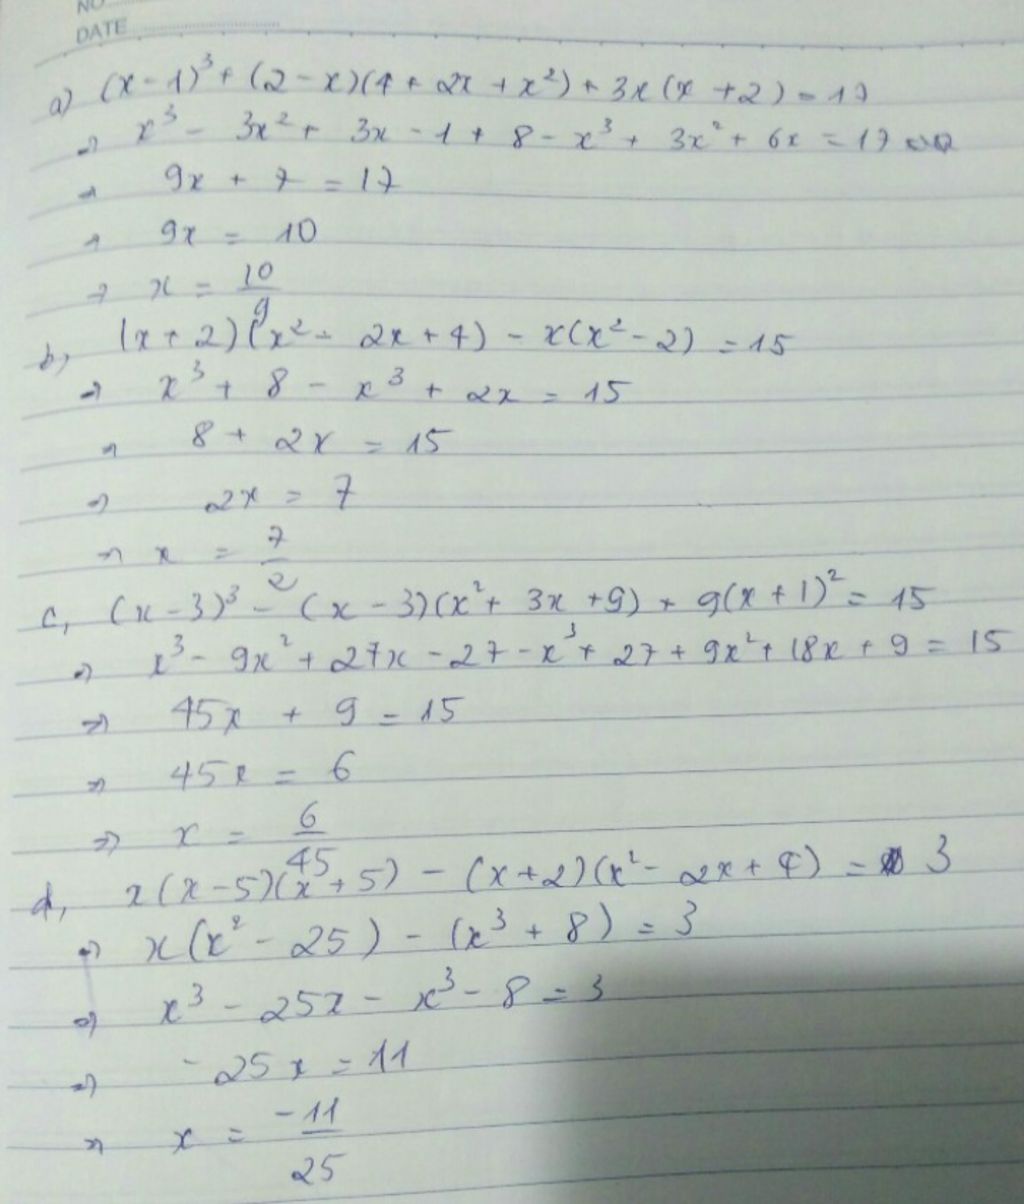 NO
DATE
a) (x-1)³ + (2-x)(4 + 2x + x²) + 3x(x+2) = 17
⇒ x³ - 3x² + 3x - 1 + 8 - x³ + 3x² + 6x = 17
⇒ 9x + 7 = 17
⇒ 9x = 10
⇒ x = 10/9
b, (x+2)(x² - 2x + 4) - x(x²-2) = 15
⇒ x³ + 8 - x³ + 2x = 15
⇒ 8 + 2x = 15
⇒ 2x = 7
⇒ x = 7/2
c, (x-3)³ - (x-3)(x² + 3x + 9) + 9(x+1)² = 15
⇒ x³ - 9x² + 27x - 27 - x³ + 27 + 9x² + 18x + 9 = 15
⇒ 45x + 9 = 15
⇒ 45x = 6
⇒ x = 6/45
d, x(x-5)(x+5) - (x+2)(x² - 2x + 4) = 3
⇒ x(x² - 25) - (x³ + 8) = 3
⇒ x³ - 25x - x³ - 8 = 3
⇒ -25x = 11
⇒ x = -11/25